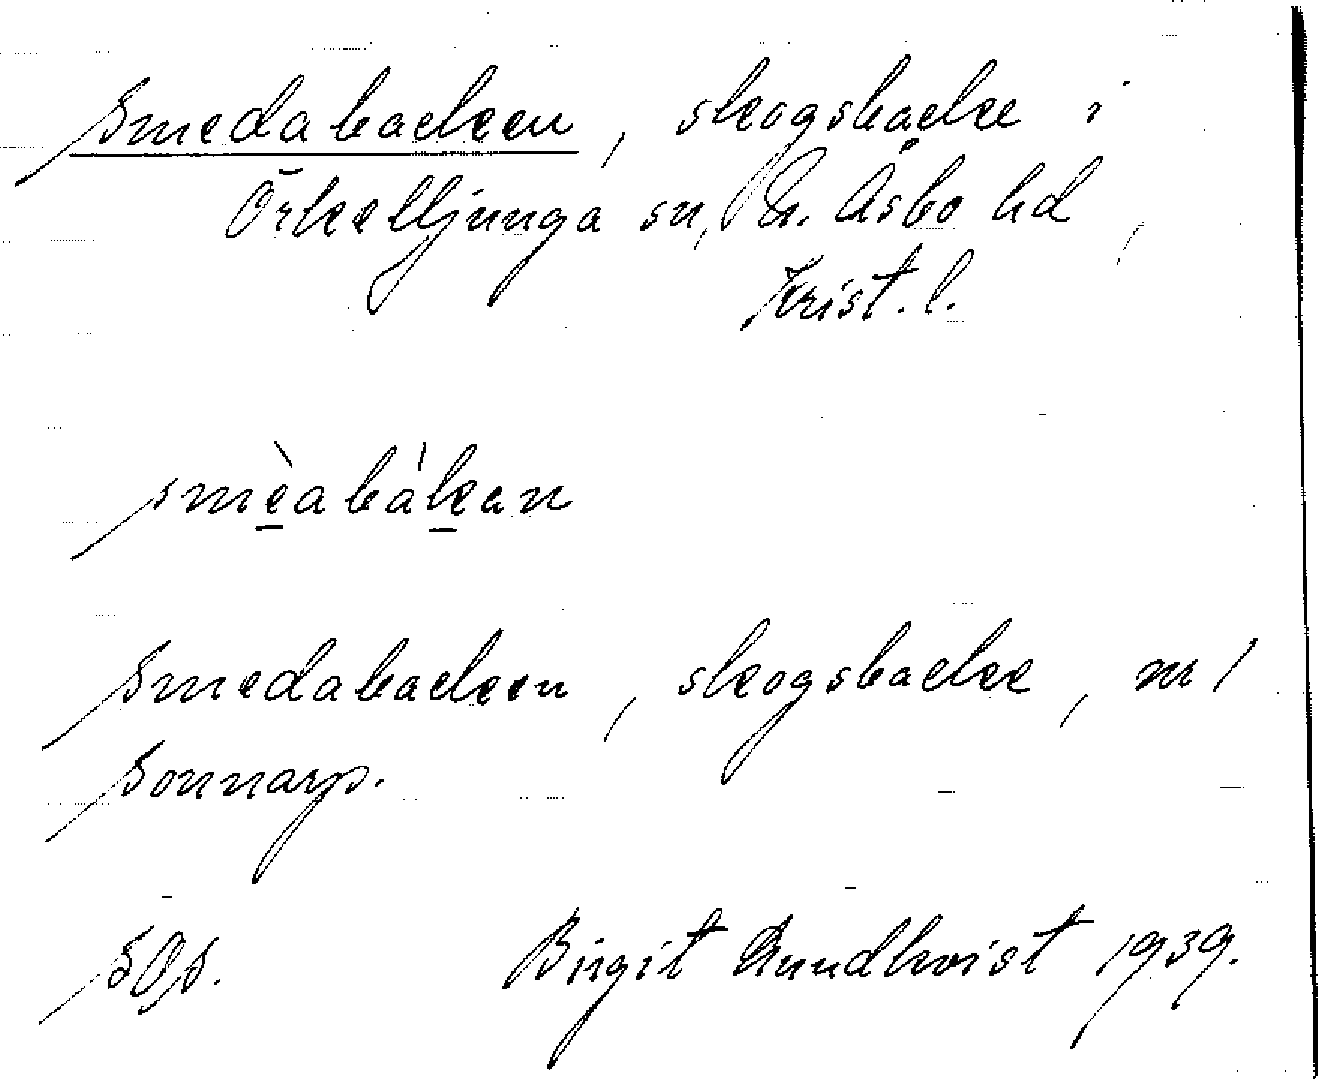 Smedabacken, skogsbacke i
Örkelljunga sn, N. Åsbo hd,
Krist. l.
smèabàkan
Smedabacken, skogsbacke, nr 1
Sonnarp.
SOS. Birgit Lundkvist 1939.